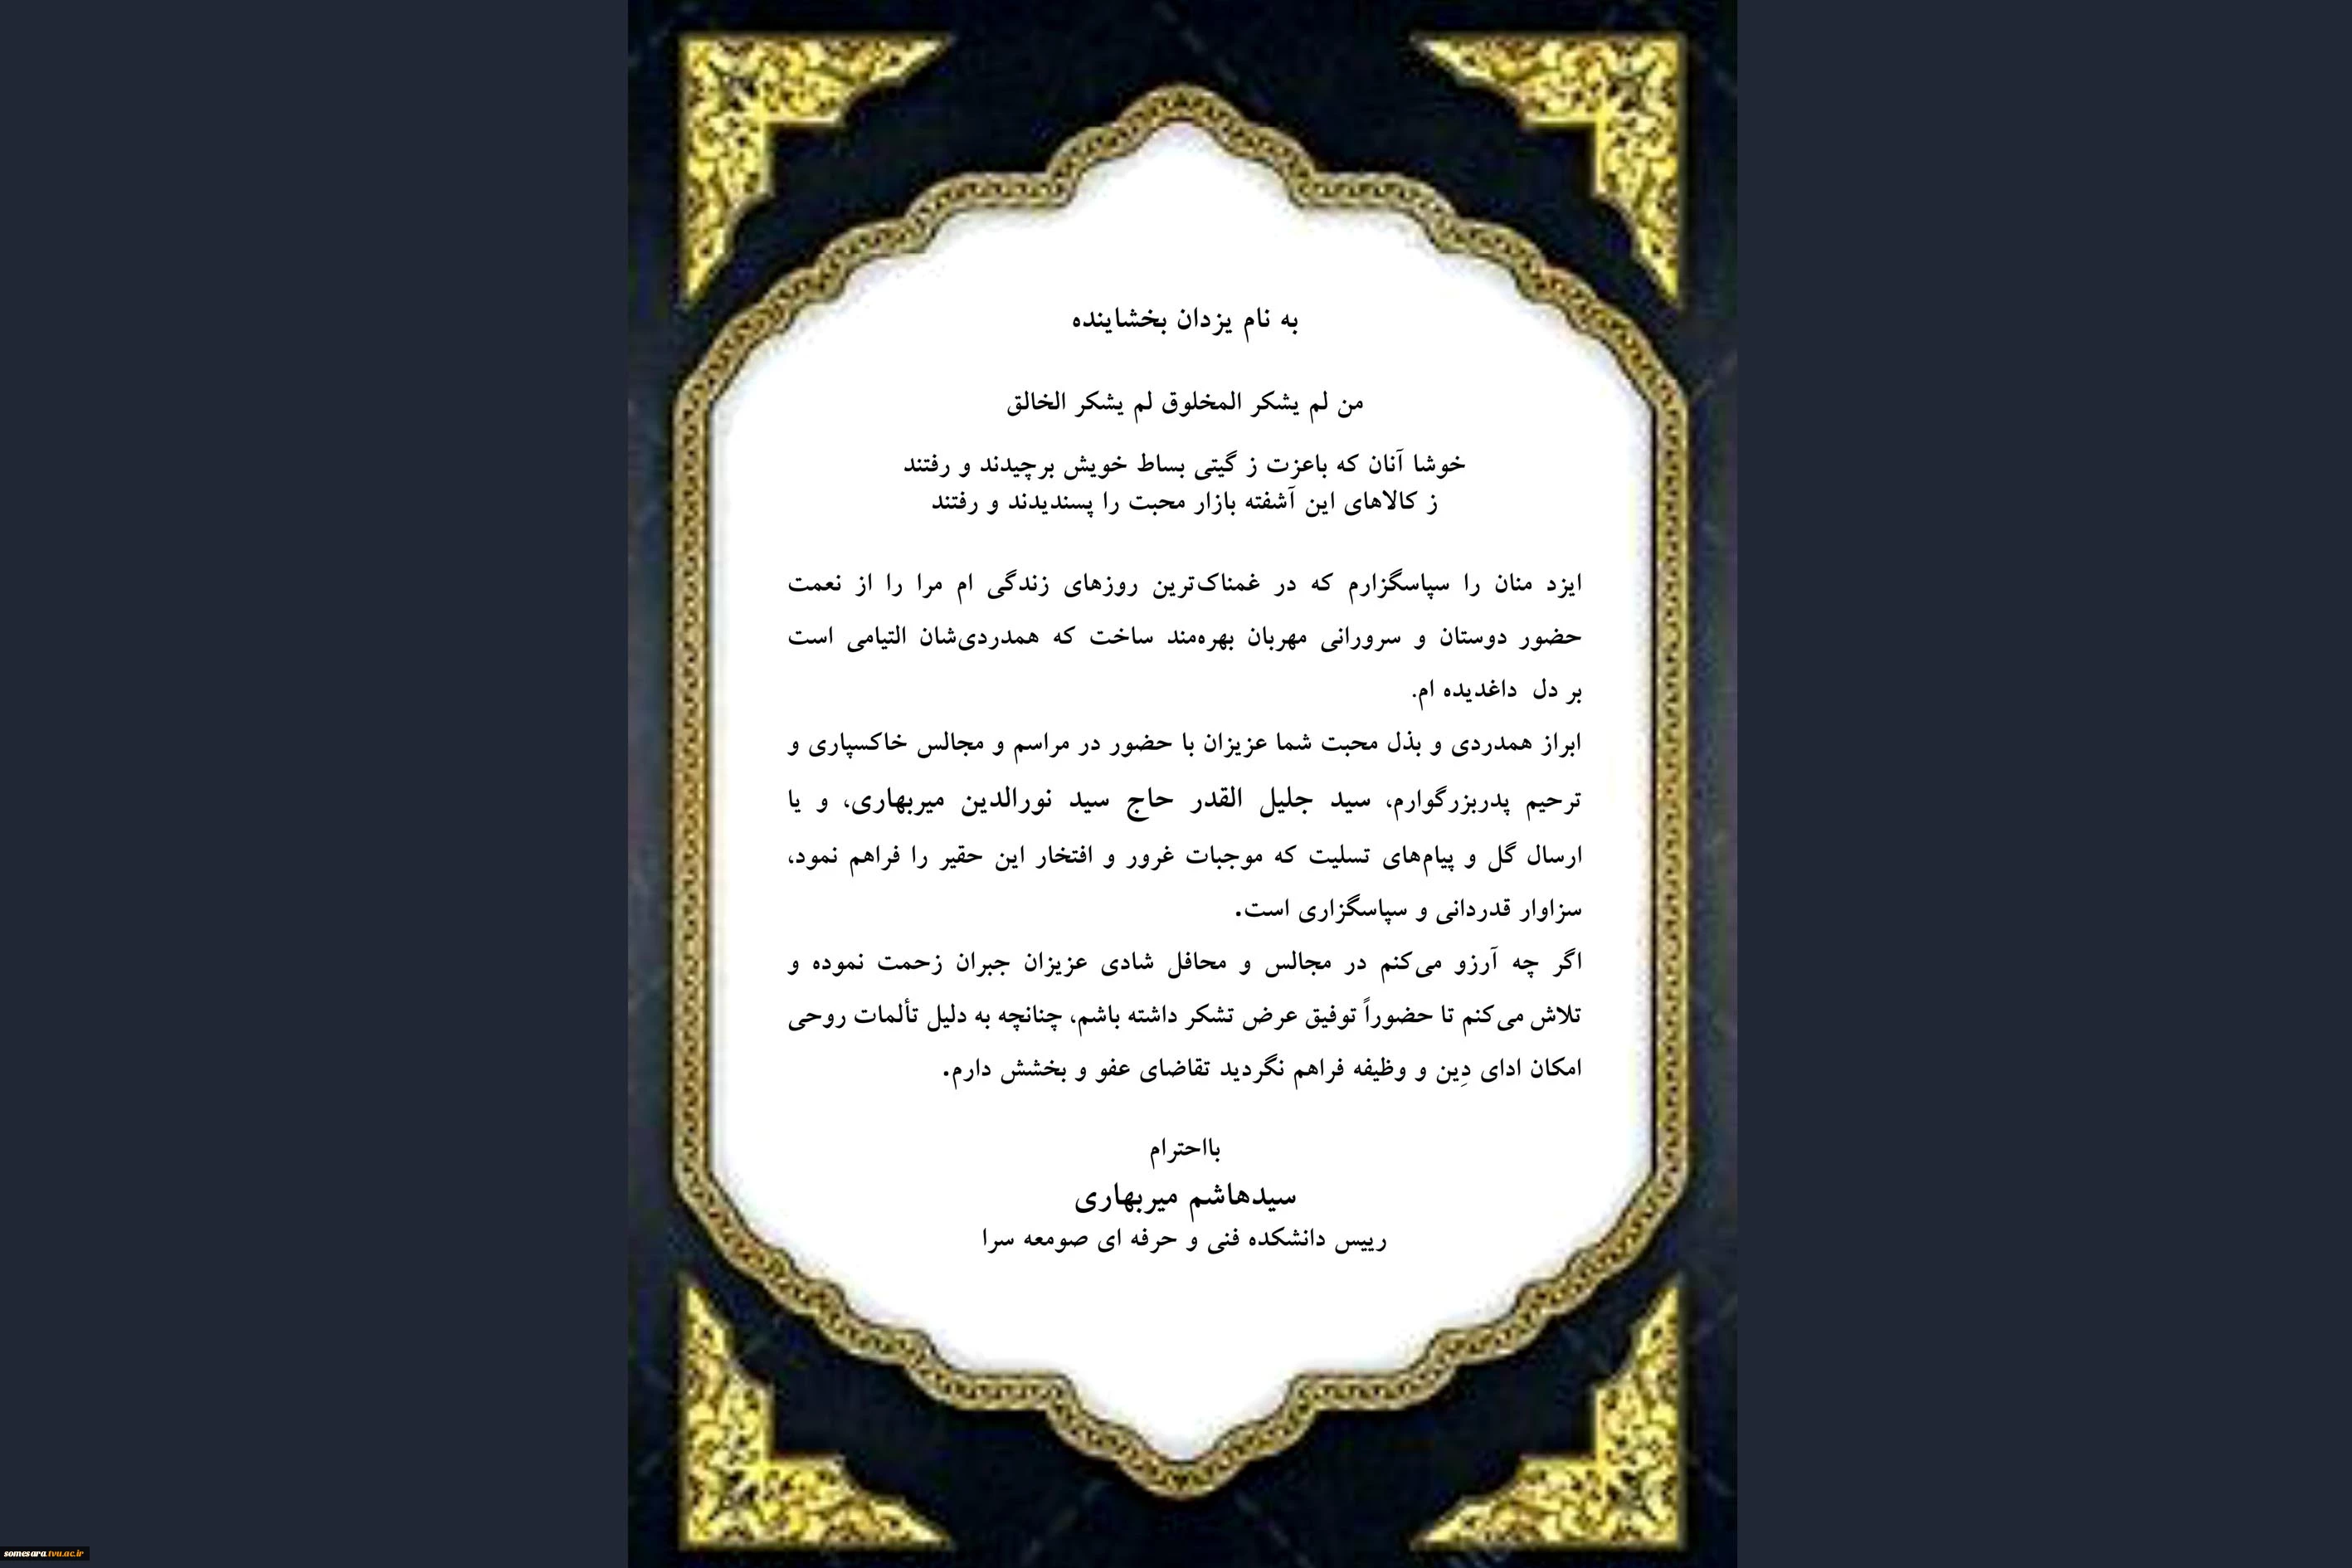 به نام یزدان بخشاینده
من لم یشکر المخلوق لم یشکر الخالق
خوشا آنان که باعزت ز گیتی بساط خویش برچیدند و رفتند
ز کالاهای این آشفته بازار محبت را پسندیدند و رفتند
ایزد منان را سپاسگزارم که در غمناک‌ترین روزهای زندگی ام مرا را از نعمت
حضور دوستان و سرورانی مهربان بهره‌مند ساخت که همدردی‌شان التیامی است
بر دل داغدیده ام.
ابراز همدردی و بذل محبت شما عزیزان با حضور در مراسم و مجالس خاکسپاری و
ترحیم پدربزرگوارم، سید جلیل القدر حاج سید نورالدین میربهاری، و یا
ارسال گل و پیام‌های تسلیت که موجبات غرور و افتخار این حقیر را فراهم نمود،
سزاوار قدردانی و سپاسگزاری است.
اگر چه آرزو می‌کنم در مجالس و محافل شادی عزیزان جبران زحمت نموده و
تلاش می‌کنم تا حضوراً توفیق عرض تشکر داشته باشم، چنانچه به دلیل تألمات روحی
امکان ادای دِین و وظیفه فراهم نگردید تقاضای عفو و بخشش دارم.
بااحترام
سیدهاشم میربهاری
رییس دانشکده فنی و حرفه ای صومعه سرا
somesara.tvu.ac.ir